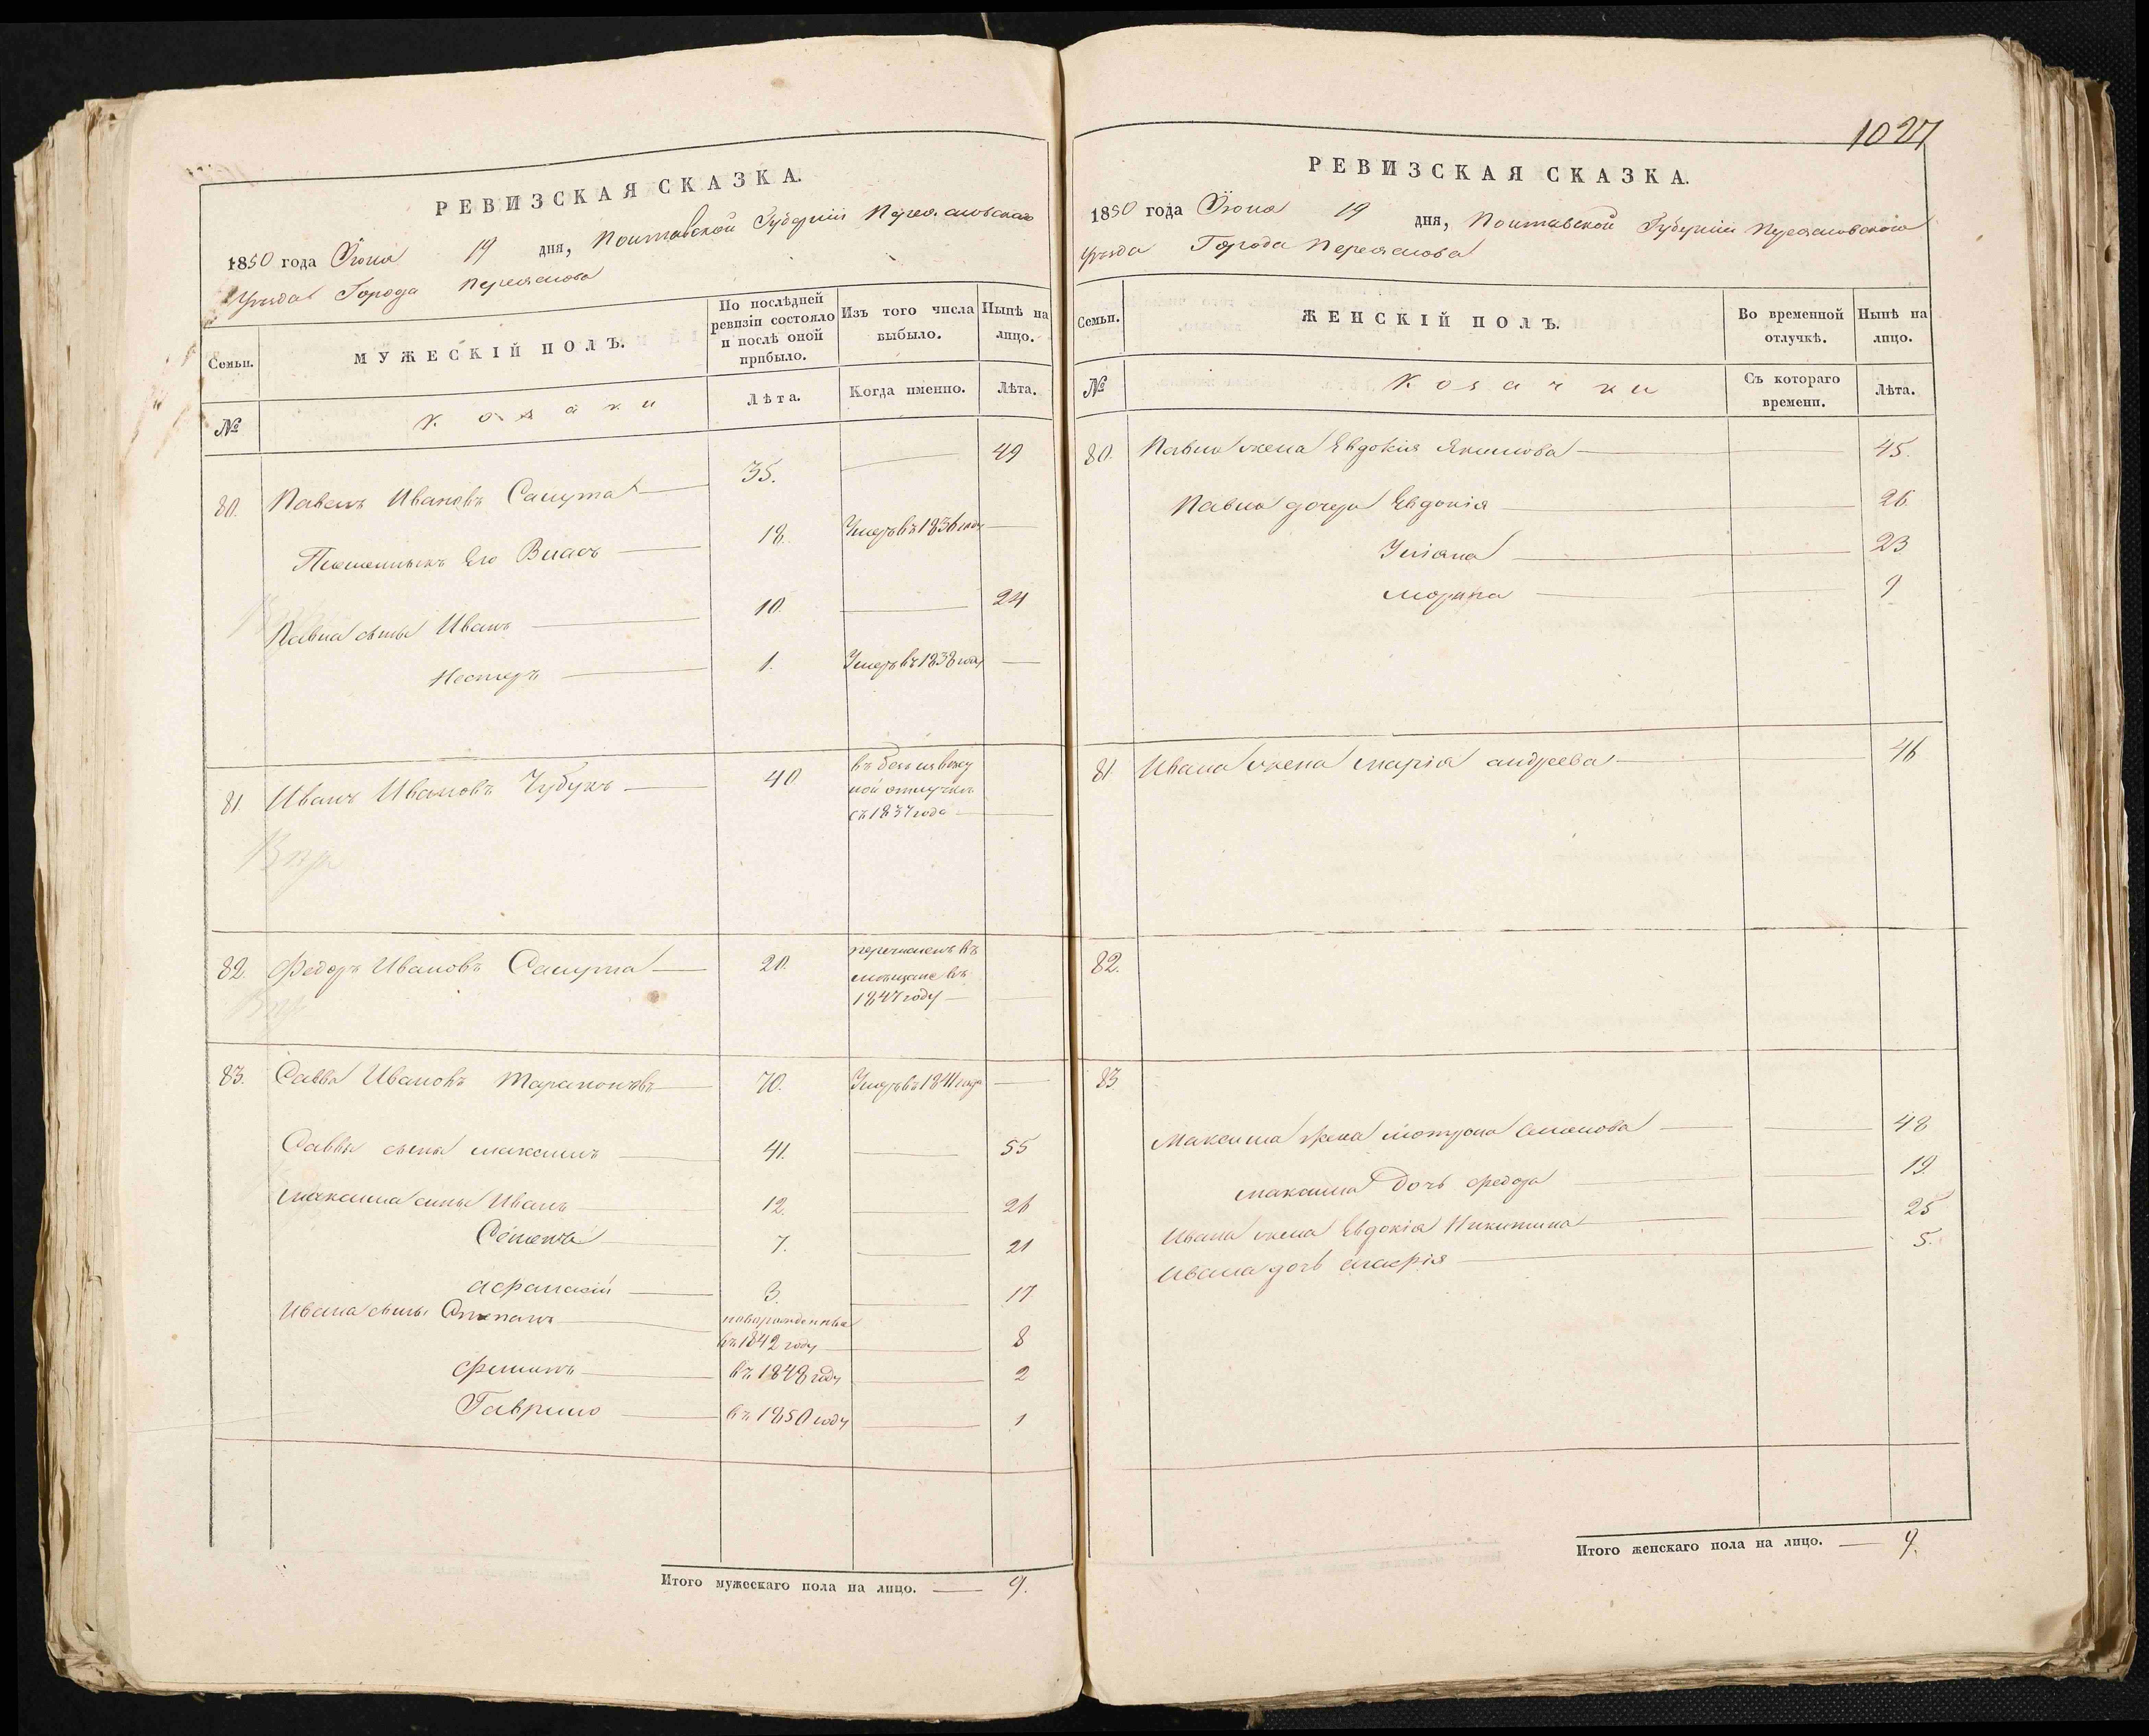 РЕВИЗСКАЯ СКАЗКА.
1850 года Іюня 19 дня, Полтавской Губерніи Переяславскаго
Уѣзда Города Переяслова
Семьи. МУЖЕСКІЙ ПОЛЪ. По послѣдней ревизіи состояло и послѣ оной прибыло. Изъ того числа выбыло. Нынѣ на лицо.
№ Козаки Лѣта. Когда именно. Лѣта.
80. Павелъ Ивановъ Салута 35. 49
Племенникъ Его Власъ 18. Умеръ въ 1836 году
Павла сынъ Иванъ 10. 24
Нестеръ 1. Умеръ въ 1838 году
81. Иванъ Ивановъ Чубукъ 40
въ безъизвѣст
ной отлучкѣ
съ 1837 года
82. Федоръ Ивановъ Салута 20.
перечисленъ въ
мѣщане въ
1847 году
83. Савва Ивановъ 70. Умеръ въ 1841 году
Саввы сынъ Максимъ 41. 55
Максима сины Иванъ 12. 26
Семенъ 7. 21
Афанасій 3. 17
Ивана сыны Степанъ новорожденные
въ 1842 году 8
Филипъ въ 1848 году 2
Гаврило въ 1850 году 1
Итого мужескаго пола на лицо. 9.
1027
РЕВИЗСКАЯ СКАЗКА.
1850 года Іюня 19 дня, Полтавской Губерніи Переясловскаго
Уѣзда Города Переяслова
Семьи. ЖЕНСКІЙ ПОЛЪ. Во временной отлучкѣ. Нынѣ на лицо.
№ Козачки Съ котораго времени. Лѣта.
80. Павла жена Евдокія Якимова 45.
Павла дочери Евдокія 26.
Уліана 23
Марина 9
81 Ивана жена Марія Андреева 46
82.
83
Максима жена Мотрона Семенова 48
Максима Дочь Федора 19.
Ивана жена Евдокія Никитина 25
Ивана дочь 5.
Итого женскаго пола на лицо. 9.